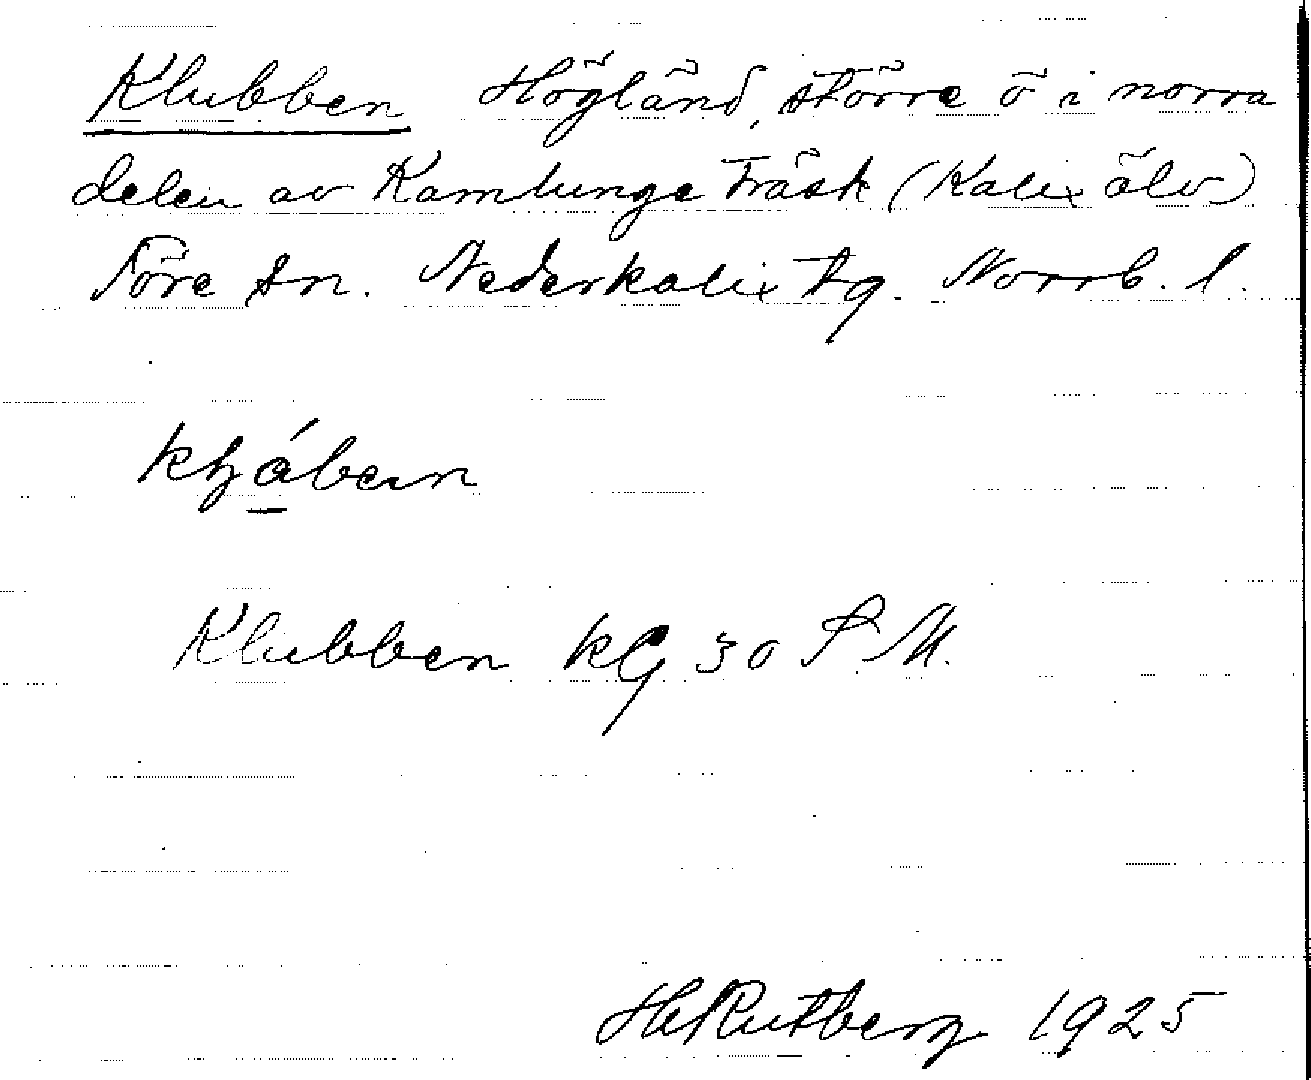 Klubben Högländ, större ö i norra
delen av Kamlunge Träsk (Kalix älv)
Töre sn. Nederkalix tg. Norrb. l.
Klubben kG 30 S M.
H Rutberg 1925